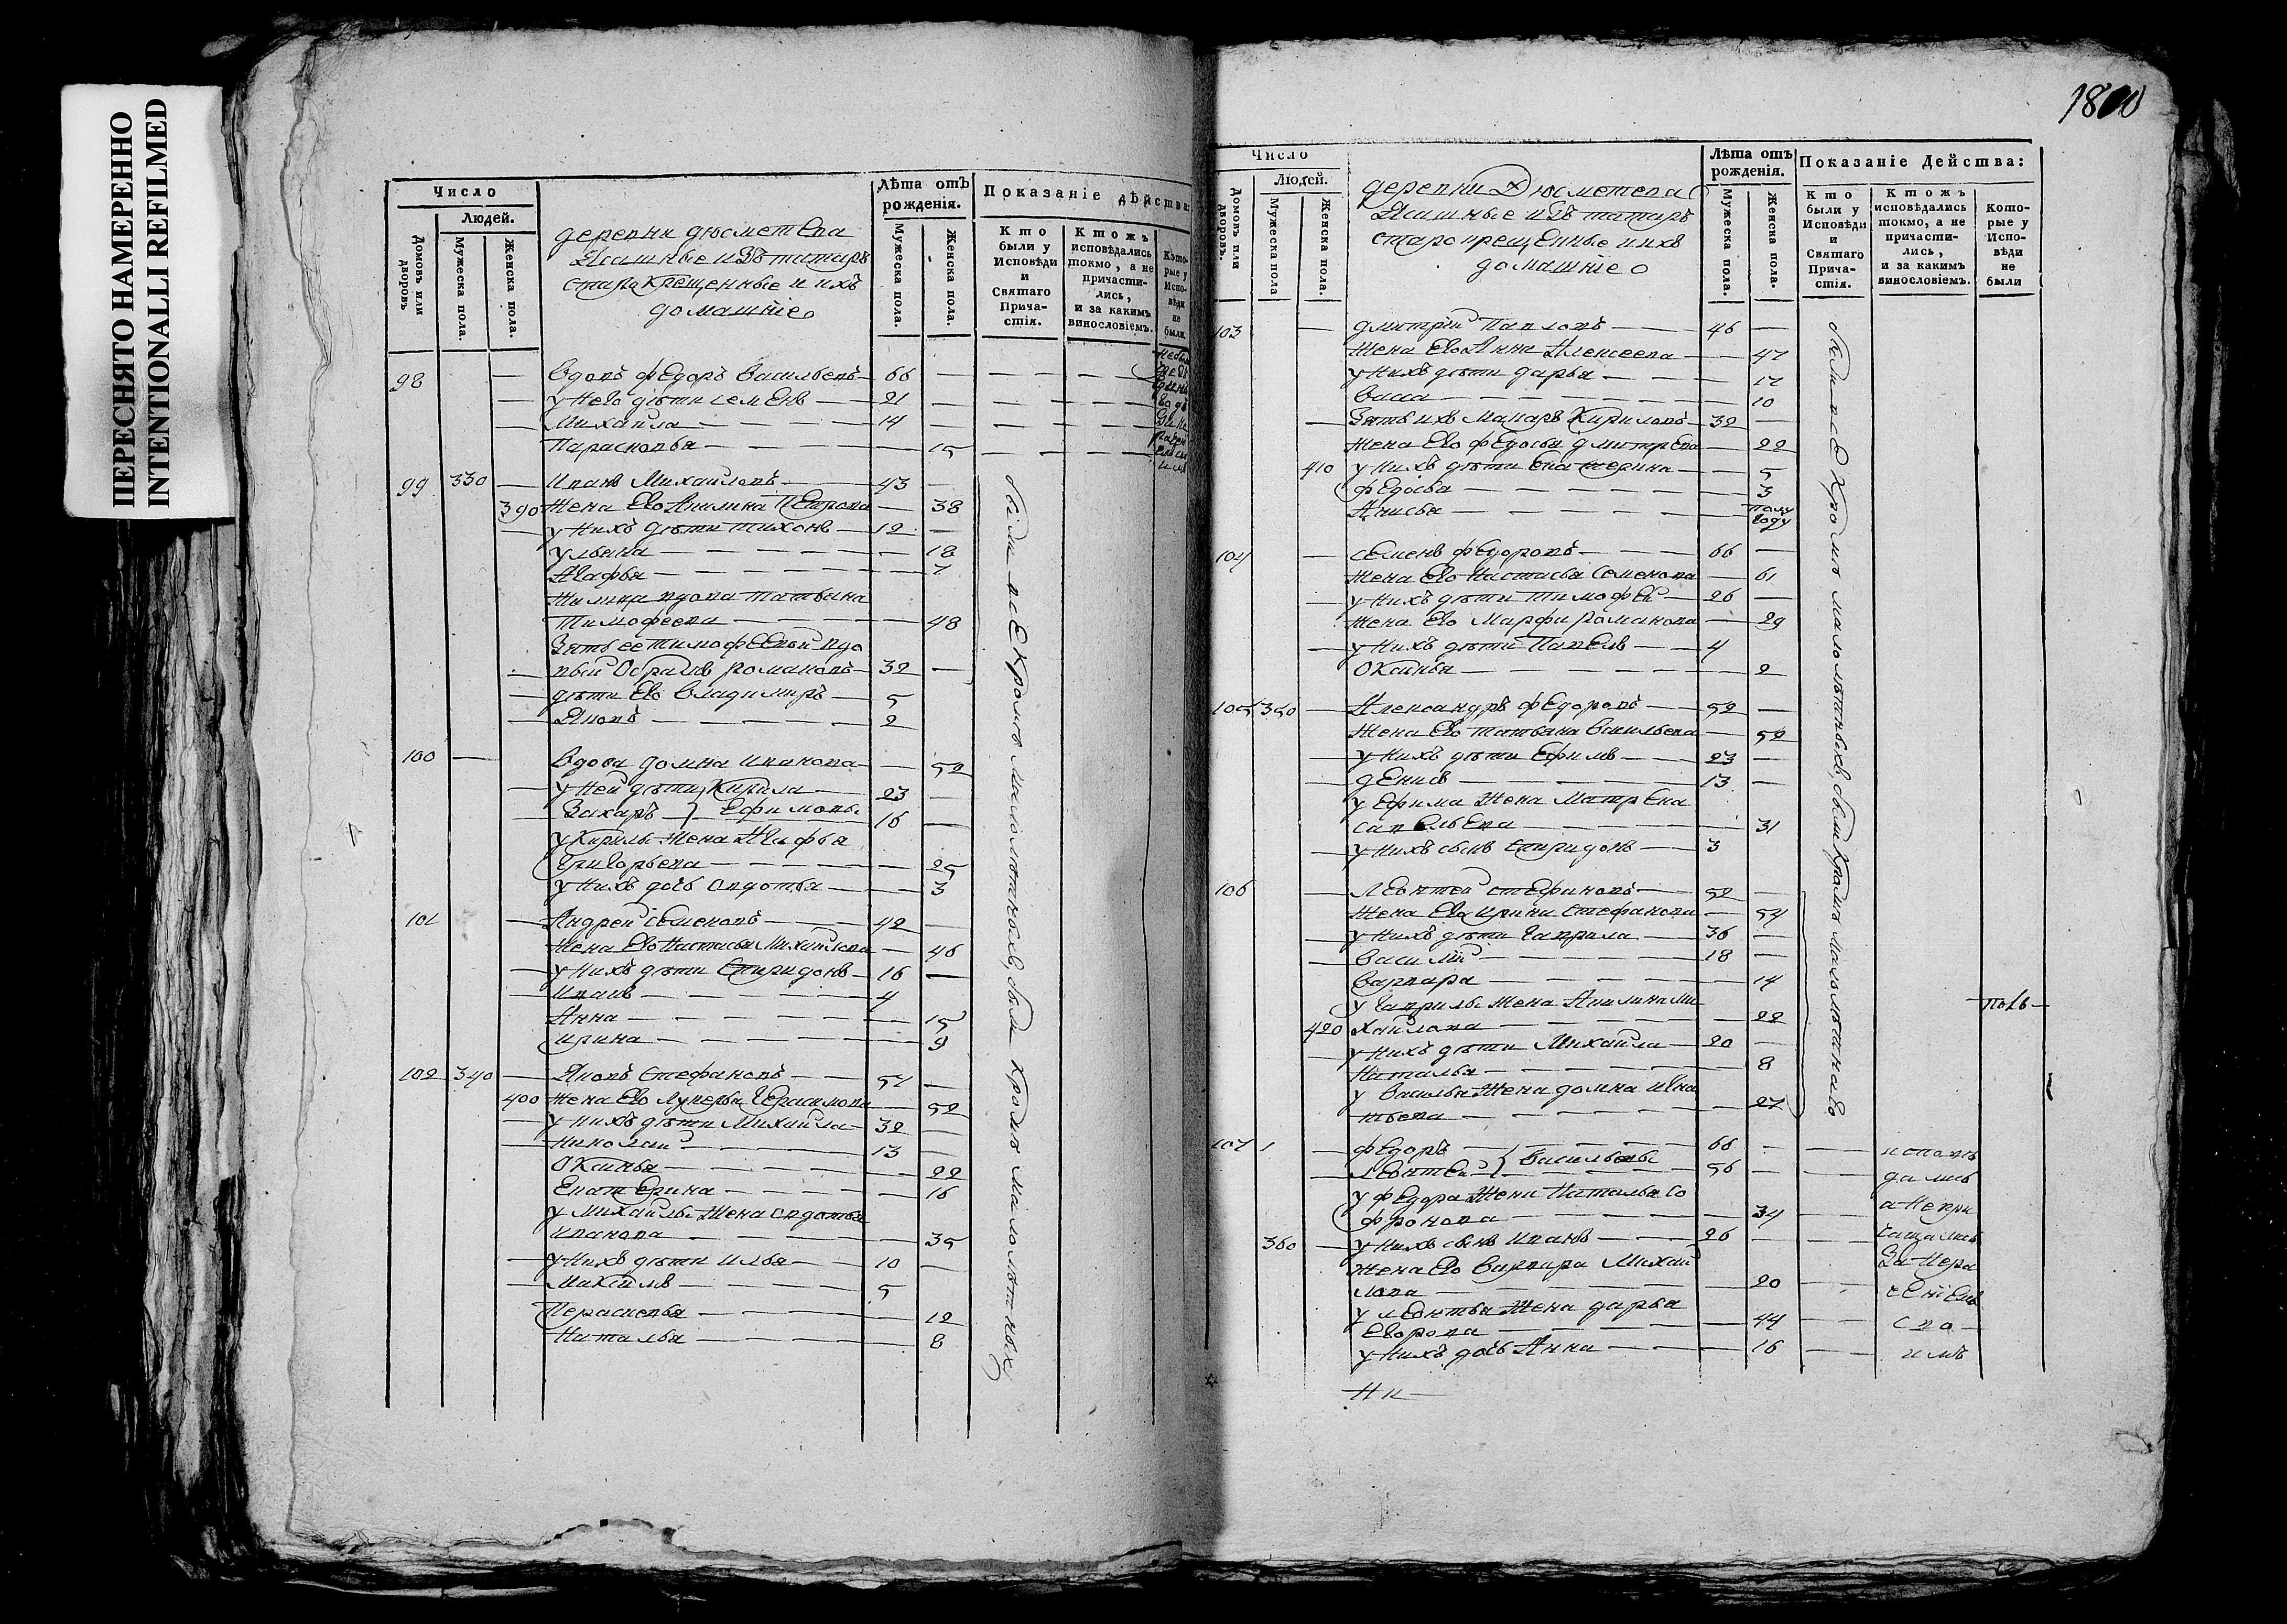 ПЕРЕСНЯТО НАМЕРЕННО
INTENTIONALLI REFILMED
Число
Людей.
Домовъ или дворовъ
Мужеска пола.
Женска пола.
деревни дюсметева
Ясашные изъ татаръ
старокрещенные и ихъ
домашніе
Лѣта отъ рожденія.
Мужеска пола.
Женска пола.
Показаніе дѣйства:
Кто были у Исповѣди и Святаго Прича-стія.
Ктожъ исповѣдались токмо, а не причасти-лись, и за какимъ винословіемъ.
Кото-рые у Испо-вѣди не были.
98 вдовъ федоръ васильевъ 66
у него дѣти семенъ 21
Михайла 14
Парасковья 15
99 330 Иванъ Михайловъ 43
390 Жена Ево Акилина Петрова 38
у нихъ дѣти тихонъ 12
ульяна 18
Агафья 7
вдова татьяна
Тимофеева 48
Зять ее тимофеевой вдо
вый романовъ 32
дѣти Ево владимиръ 5
Яковъ 2
100 вдова домна иванова 52
у ней дѣти Кирила 23
Захаръ } Ефимовы 16
у Кирилы жена Агафья
Григорьева 25
у нихъ дочь овдотья 3
101 Андрей семеновъ 42
Жена Ево Настасья Михайлова 46
у нихъ дѣти спиридонъ 16
Иванъ 4
Анна 15
ирина 9
102 340 Яковъ Стефановъ 54
400 Жена Ево Лукерья Герасимова 52
у нихъ дѣти Михайла 32
Николай 13
Оксинья 22
Екатерина 16
у Михайлы жена овдотья
иванова 35
у нихъ дѣти илья 10
Максимъ 5
Парасковья 12
Наталья 8
были все кромѣ малолѣтныхъ, были кромѣ малолѣтныхъ
1800
Число
Людей.
Домовъ или дворовъ.
Мужеска пола
Женска пола.
деревни Дюсметева
Ясашные изъ татаръ
старокрещенные и ихъ
домашніе
Лѣта отъ рожденія.
Мужеска пола.
Женска пола.
Показаніе Действа:
Кто были у Исповѣди и Святаго Прича-стія.
Ктожъ исповѣдались токмо, а не причасти-лись, и за какимъ винословіемъ.
Кото-рые у Испо-вѣди не были
103 дмитрій Павловъ 46
Жена Ево Анна Алексеева 47
у нихъ дѣти дарья 17
васса 10
Зять ихъ Макаръ Кириловъ 32
жена Ево федосья дмитрева 22
410 у нихъ дѣти Екатерина 5
федосья 3
Анисья полу году
104 семенъ федоровъ 66
жена Ево Настасья семенова 61
у нихъ дѣти тимофей 26
жена Ево Марфа романова 29
у нихъ дѣти Павелъ 4
Оксинья 2
105 350 Александръ федоровъ 52
Жена Ево татьяна васильева 52
у нихъ дѣти Ефимъ 23
денисъ 13
у Ефима жена Матрена
савельева 31
у нихъ сынъ спиридонъ 3
106 Леонтей стефановъ 52
жена Ево ирина стефанова 54
у нихъ дѣти гаврила 36
василій 18
варвара 14
у гаврилы жена Акилина ми
420 хайлова 22
у нихъ дѣти Михайла 20
Наталья 8
у василья жена домна игна
тьева 27
107 1 федоръ 66
Леонтей } васильевы 56
у федора жена Наталья со
фронова 34
360 у нихъ сынъ иванъ 26
жена Ево варвара Михай
лова 20
у леонтья жена дарья
Егорова 44
у нихъ дочь Анна 16
были все кромѣ малолѣтныхъ, были кромѣ малолѣтнаго
исповѣ
дались
а непри
чащались
За нера
ченіемъ
сво
имъ